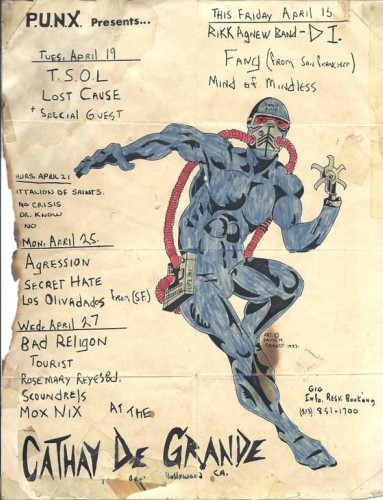 P.U.N.X. Presents...
THIS FRIDAY APRIL 15
RIKK AGNEW BAND - D I.
FANG (FROM SAN FRANCISCO)
MIND OF MINDLESS
TUES. APRIL 19
T.S.O.L
LOST CAUSE
+ SPECIAL GUEST
HURS. APRIL 21
ATTALION OF SAINTS.
NO CRISIS
DR. KNOW
NO
MON. APRIL 25.
AGRESSION
SECRET HATE
LOS OLIVADADOS from (SF)
WED. APRIL 27
BAD RELIGON
TOURIST
ROSEMARY REYES Bd.
SCOUNDRELS
MOX NIX
AT THE
CATHAY DE GRANDE
HOLLYWOOD CA.
ART ©
DAVID M.
1983.
GIG
Info. RESV. Booking
(213) 851-1700